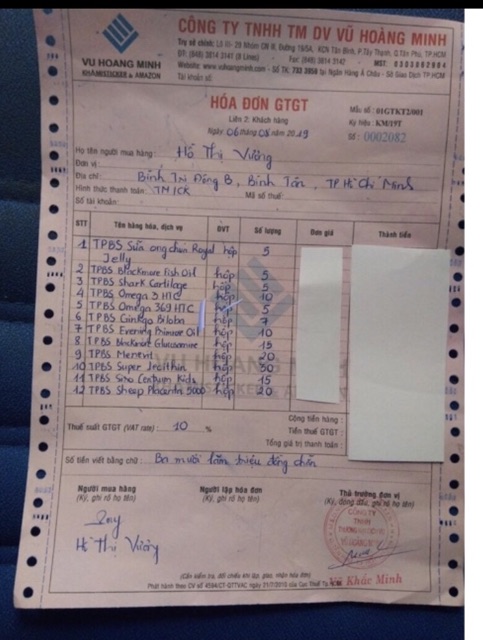 CÔNG TY TNHH TM DV VŨ HOÀNG MINH
VU HOANG MINH
KHÁNHSEEKER & AMAZON
Trụ sở chính: Lô III- 29 Nhóm CN III, Đường 19/5A, KCN Tân Bình, P.Tây Thạnh, Q.Tân Phú, TP.HCM
ĐT: (848) 3814 3141 (8 Lines) Fax: (848) 3814 3142
Website: www.vuhoangminh.com - Số TK: tại Ngân Hàng Á Châu - Sở Giao Dịch TP.HCM
Tài khoản số:
HÓA ĐƠN GTGT
Liên 2: Khách hàng
Ngày: 06 tháng 08 năm 2019
Mẫu số: 01GTKT2/001
Ký hiệu: KM/19T
Số: 0002082
Họ tên người mua hàng: Hồ Thị Vường
Đơn vị:
Địa chỉ: Bình Trị Đông B, Bình Tân, TP Hồ Chí Minh
Hình thức thanh toán: TM/CK Mã số thuế:
Số tài khoản:
STT Tên hàng hóa, dịch vụ ĐVT Số lượng Đơn giá Thành tiền
1 TPBS Sữa ong chúa Royal hộp 5
Jelly
2 TPBS Blackmore Fish Oil hộp 5
3 TPBS Shark Cartilage hộp 5
4 TPBS Omega 3 HTC hộp 10
5 TPBS Omega 369 HTC hộp 5
6 TPBS Ginkgo Biloba hộp 7
7 TPBS Evening Primrose Oil hộp 10
8 TPBS Blackmore Glucosamine hộp 15
9 TPBS Menevit hộp 20
10 TPBS Super hộp 50
11 TPBS Kids hộp 15
12 TPBS Sheep Placenta 5000 hộp 20
VU HOANG MINH
Cộng tiền hàng:
Thuế suất GTGT (VAT rate): 10 % Tiền thuế GTGT:
Tổng giá trị thanh toán:
Số tiền viết bằng chữ: Ba mười lăm triệu đồng chẵn
Người mua hàng Người lập hóa đơn Thủ trưởng đơn vị
(Ký, ghi rõ họ tên) (Ký, ghi rõ họ tên) (Ký, đóng dấu, ghi rõ họ tên)
Hồ Thị Vường
CÔNG TY
TNHH
VŨ HOÀNG MINH
Vũ Khắc Minh
(Cần kiểm tra, đối chiếu khi lập, giao, nhận hóa đơn)
Phát hành theo CV số 4594/CT-QTTVAC ngày 21/7/2010 của Cục Thuế Tp.HCM